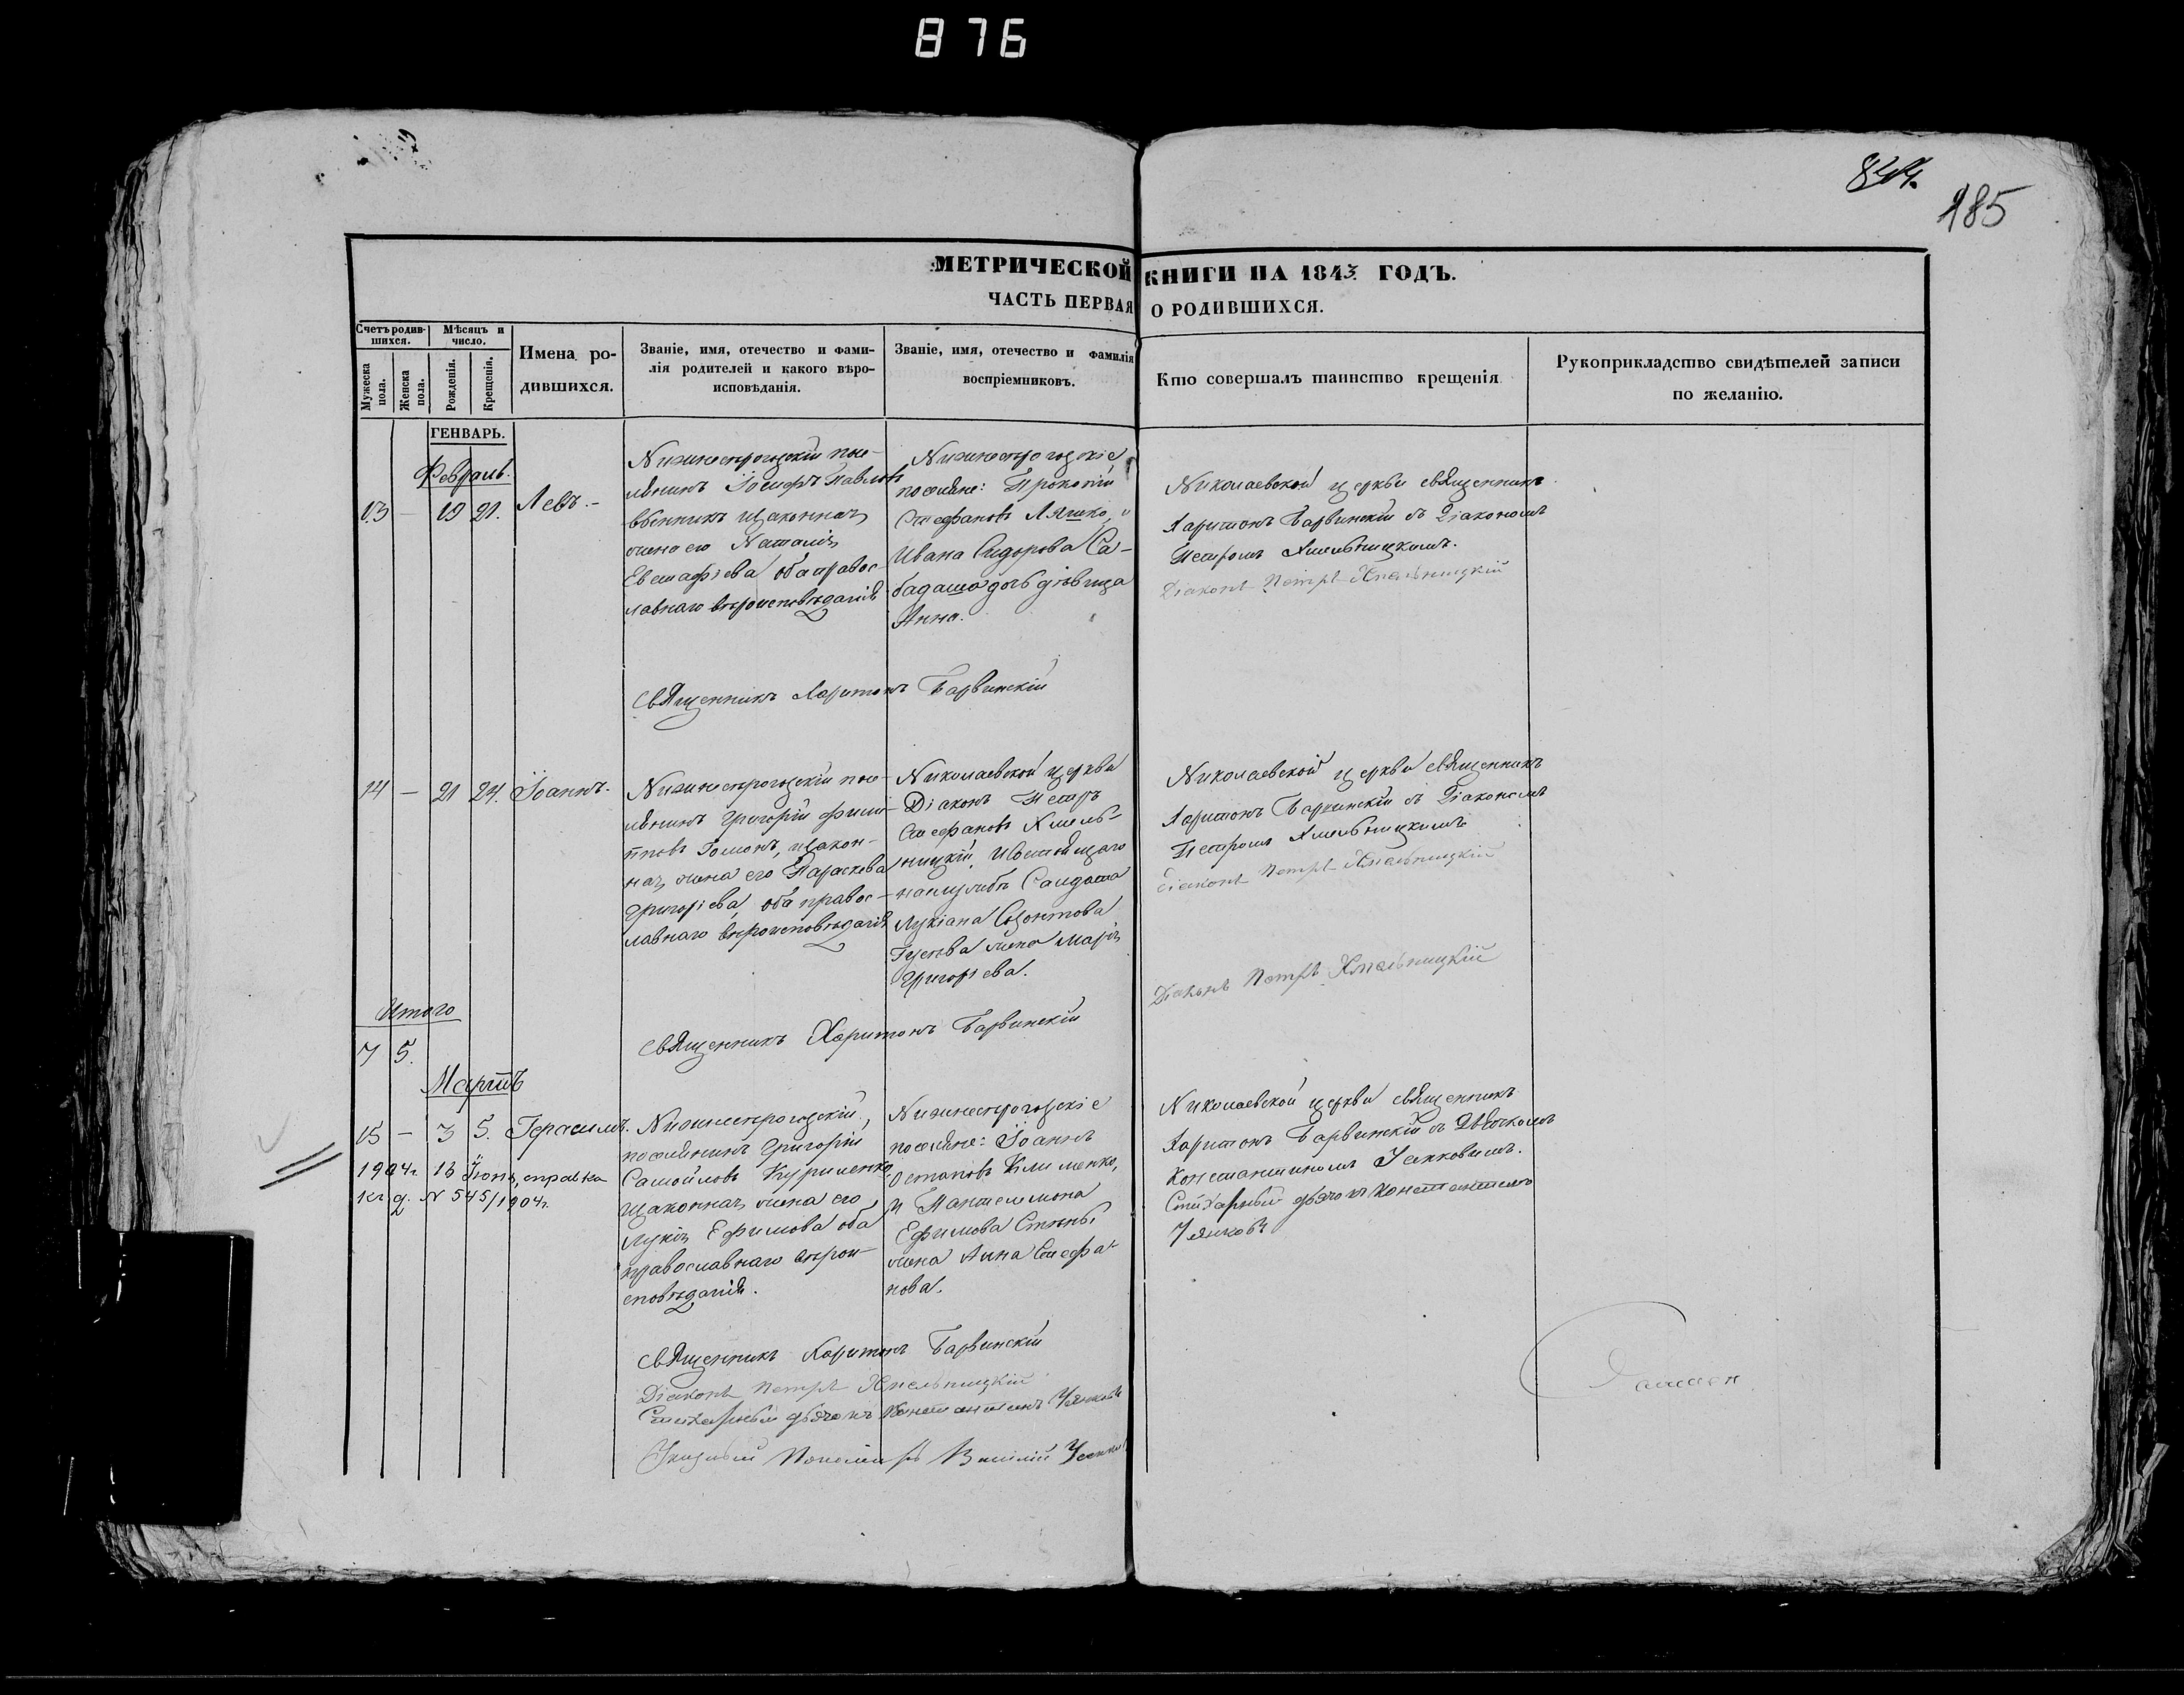 876
844.
185
МЕТРИЧЕСКОЙ КНИГИ НА 1843 ГОДЪ.
ЧАСТЬ ПЕРВАЯ О РОДИВШИХСЯ.
Счетъ родив-
шихся.
Мѣсяцъ и
число.
Мужеска
пола.
Женска
пола.
Рожденія.
Крещенія.
Имена ро-
дившихся.
Званіе, имя, отечество и фами-
лія родителей и какого вѣро-
исповѣданія.
Званіе, имя, отечество и фамилія
воспріемниковъ.
Кто совершалъ таинство крещенія
Рукоприкладство свидѣтелей записи
по желанію.
ГЕНВАРЬ.
Февраль.
13 — 19 21. Левъ.-
Нижнесѣрогозскій посе-
лянинъ Іосифъ Павловъ
законная
жена его Наталія
Евстафіева оба правос-
лавнаго вѣроисповѣданія
Нижнесѣрогозскіе
поселяне: Прокопій
Стефановъ Ляшко, и
Ивана Сидорова Са-
бадаша дочь дѣвица
Анна.
Николаевской церкви священникъ
Харитонъ Барвинскій съ Діакономъ
Петромъ Хмельницкимъ.
Діаконъ Петръ Хмельницкій
Священникъ Харитонъ Барвинскій
14 — 21 24. Іоаннъ.
Нижнесѣрогозскій посе-
лянинъ Григорій Фили-
повъ Гомонъ, и закон-
ная жена его Параскева
Григорієва, оба правос-
лавнаго вѣроисповѣданія
Николаевской церкви
Діаконъ Петръ
Стефановъ Хмель-
ницкій,
Солдата
Лукіана Созонтова
Гусева жена Марія
Григорієва.
Николаевской церкви священникъ
Харитонъ Барвинскій съ Діакономъ
Петромъ Хмельницкимъ
Діаконъ Петръ Хмельницкій
Діаконъ Петръ Хмельницкій
Итого
7 5.
Священникъ Харитонъ Барвинскій
Мартъ
15 — 3 5. Герасимъ.
1904г. 16 Іюня, справка
къ д. N 545/1904г.
Нижнесѣрогозскій,
поселянинъ Григорій
Самойловъ Куриленко,
и законная жена его
Лукія Ефимова оба
православнаго вѣрои-
сповѣданія.
Нижнесѣрогозскіе
поселяне: Іоаннъ
Остаповъ Клименко,
и Пантелимона
Ефимова
жена Анна Стефа-
нова.
Николаевской церкви священникъ
Харитонъ Барвинскій съ Дьячкомъ
Константиномъ
Стихарный дьячокъ Константинъ
Священникъ Харитонъ Барвинскій
Діаконъ Петръ Хмельницкій
Стихарный дьячокъ Константинъ
Указный Пономарь